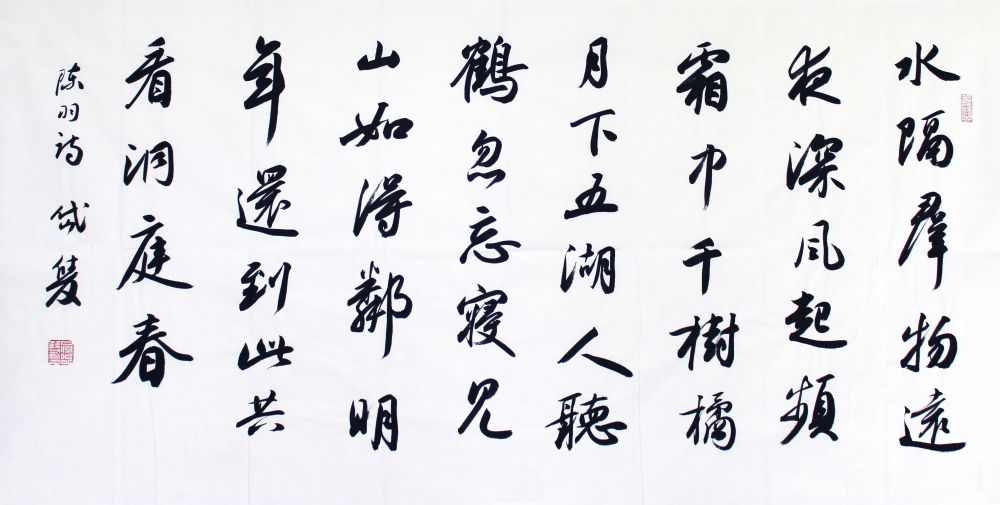 水隔羣物遠
夜深风起頻
霜中千樹橘
月下五湖人聽
鶴忽忘寢見
山如得鄰明
年還到此共
看洞庭春
陈羽诗 岱